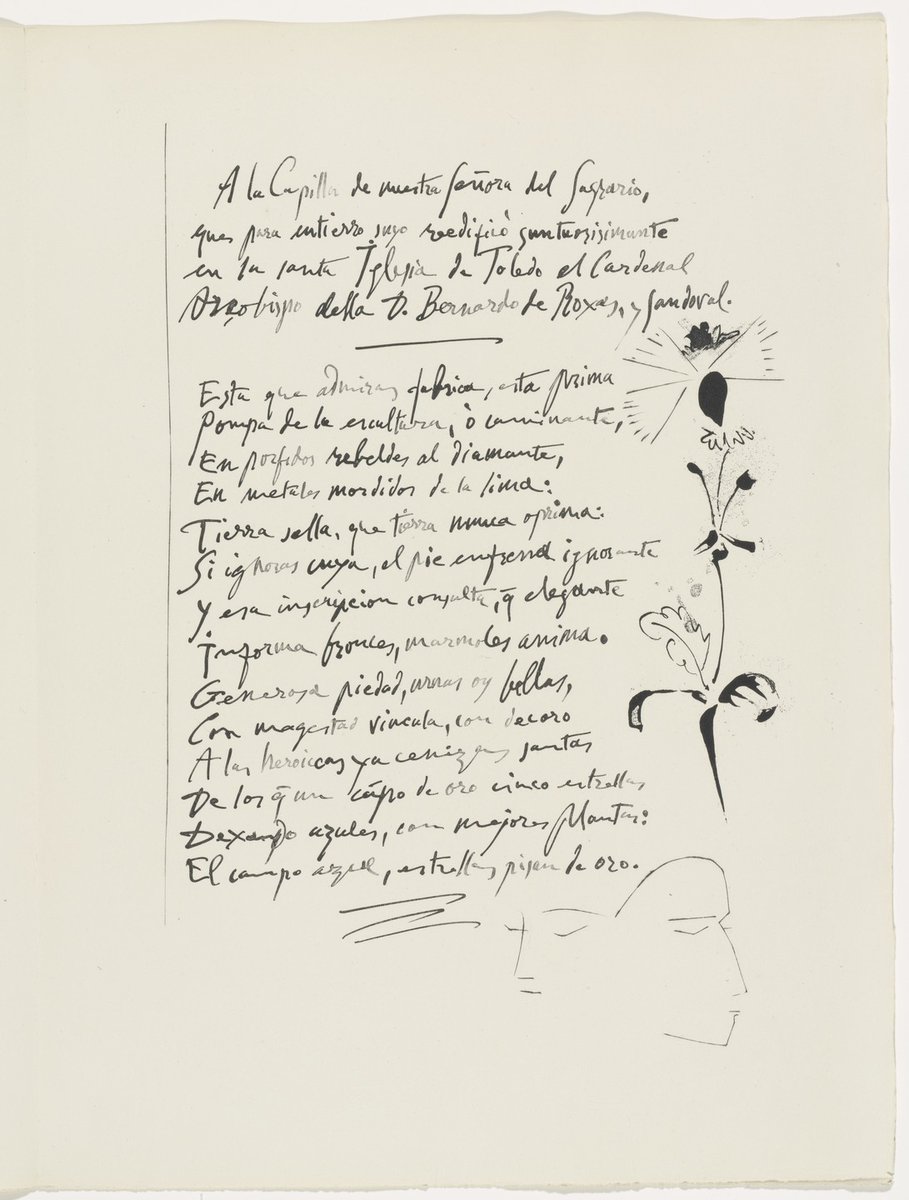 A la Capilla de nuestra Señora del Sagrario,
que para entierro suyo reedificò suntuosisimante
en la santa Iglesia de Toledo el Cardenal
Arzobispo della D. Bernardo de Roxas, y Sandoval.
Esta que admiras fabrica, esta prima
Pompa de la escultura, ò caminante,
En porfidos rebeldes al diamante,
En metales mordidos de la lima:
Tierra sella, que tierra nunca oprima:
Si ignoras cuya, el pie enfrena ignorante
Y esa inscripcion consulta, q̄ elegante
Informa bronces, marmoles anima.
Generosa piedad, urnas oy bellas,
Con magestad vincula, con decoro
A las heroicas ya cenizas santas
De los q̄ un cãpo de oro cinco estrellas
Dexando azules, con mejores Plantas:
El campo azul, estrellas pisan de oro.